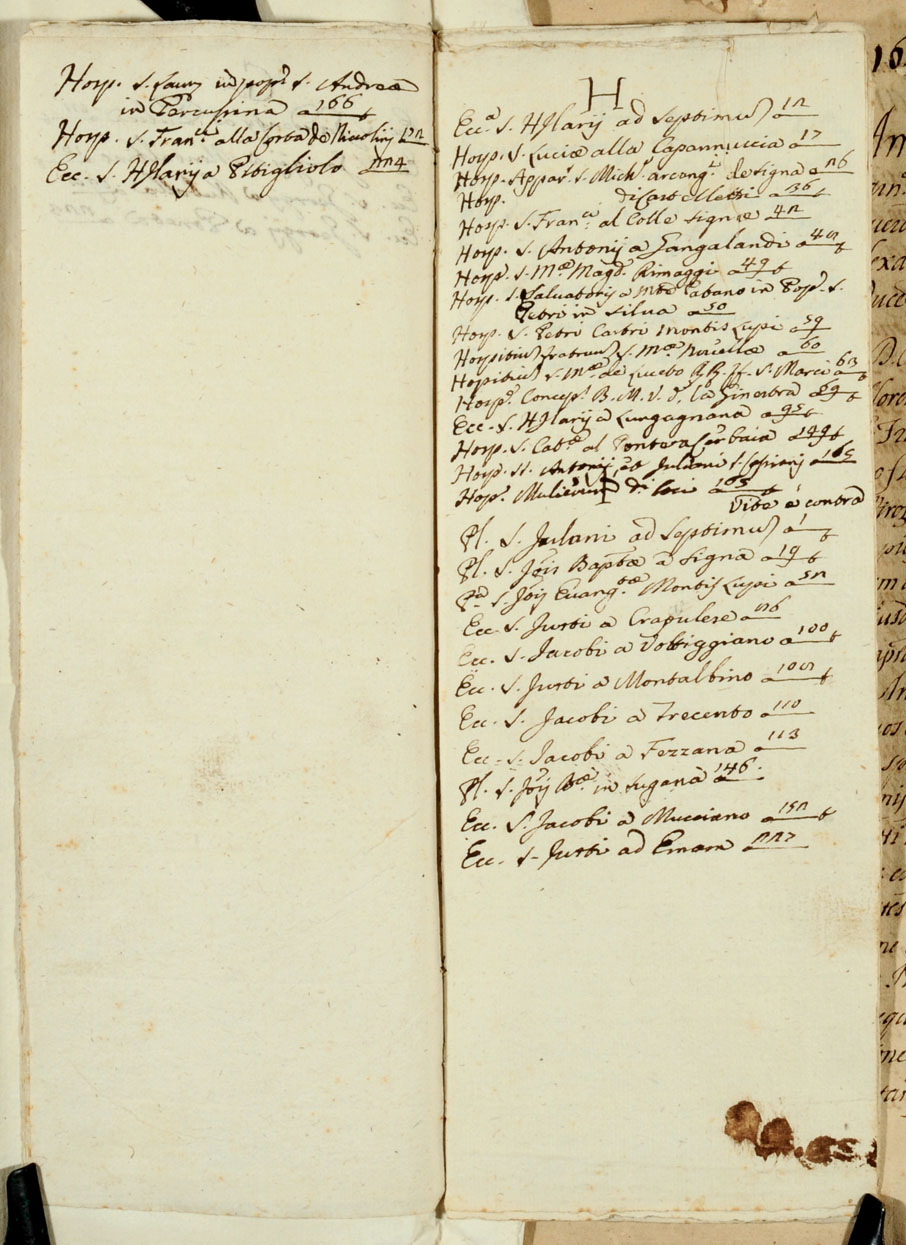 Hosp. S. Laur. in pop. S. Andreæ
in Percussina a 166
Hosp. S. Fran. alla Corba de
Ecc. S. Hylarij a Pitigliolo 224
H
Ecc.a S. Hylarij ad Septimum a 12
Hosp. S. Luciæ alla Capannuccia a 17
Hosp. Appar. S. Mich. arcang. de Signa a 26
Hosp. di Castelletti a 36
Hosp. S. Fran. al Colle Signæ 42
Hosp. S. Antonij a Gangalandi a 45
Hosp. S. M.æ Magd. Rimaggi a 49
Hosp. S. Salvatoris a Mte Pabano in Pop. S.
Petri in Silva a 50
Hosp. S. Petri Castri Montis Lupi a 59
Hospitium fratrum S. M.æ Novellæ a 60
Hospitium S. M.æ de Luceto RR. ff. S. Marci a 63
Hosp. Concep. B. M. V. d. la Ginestra a 89
Ecc. S. Hylarij a Lungagnana a 95
Hosp. S. Cat. al Ponte a Carbaia a 149
Hosp. SS. Antonij, et Juliani S. Casciani a 165
Hosp. Mulierum di loci a 165
Vide e contra
Pl. S. Juliani ad Septimum a 1
Pl. S. Jois Baptæ a Signa a 19
S. Jois Evang. Montis Lupi a 52
Ecc. S. Justi a Crapulese a 76
Ecc. S. Jacobi a Voltiggiano a 100
Ecc. S. Justi a Montalbino a 105
Ecc. S. Jacobi a Trecento a 110
Ecc. S. Jacobi a Fezzana a 113
Pl. S. Jois Bæ in Sugana a 146.
Ecc. S. Jacobi a Mucciano a 152
Ecc. S. Justi ad Emam a 227